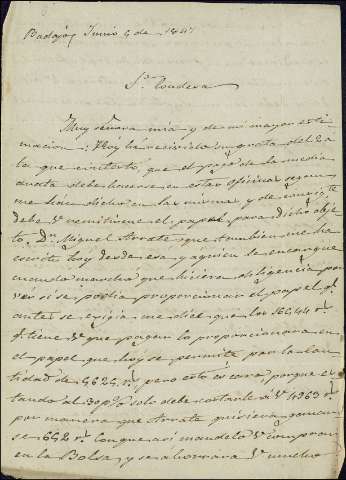 Badajoz Junio 5 de 1841
Sra. Condesa
Muy señora mia y de mi mayor esti-
macion: Hoy hé recivido su grata del 2 a
la que contesto, que el pago de la media
anata debe hacerse en estas oficinas segun
me han dicho en las mismas, y de consigte
debe V. remitirme el papel para dicho obje-
to. Dn. Miguel Arrate, que tambien me ha
escrito hoy desde esa, y a quien se encargue
cuando marchó que hiciera diligencia por
ver si se podia proporcionar el papel qe
antes se exigia me dice que los 166,44 rs
qe tiene V. que pagar lo proporcionara en
el papel que hoy se permite por la can-
tidad de 5625 rs, pero esto es caro, porque es-
tando al 30 p% solo debe costarle á V. 4963 rs
por manera que Arrate quisiera ganar-
se 662 rs con que asi mandelo V. comprar
en la Bolsa, y se ahorrará V. mucho